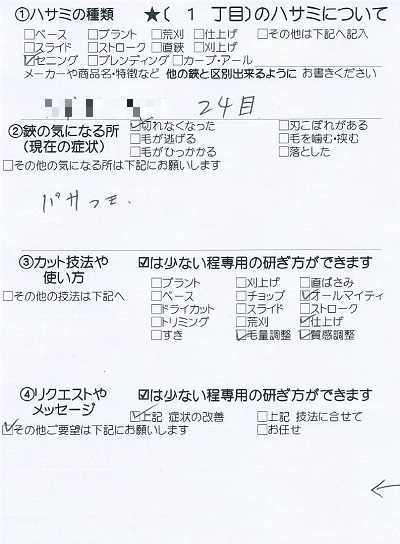 ①ハサミの種類 ★( 1 丁目)のハサミについて
□ベース □ブラント □荒刈 □仕上げ □その他は下記へ記入
□スライド □ストローク □直鋏 □刈上げ
☑セニング □ブレンディング □カーブ・アール
メーカーや商品名・特徴など 他の鋏と区別出来るように お書きください
24目
②鋏の気になる所 ☑切れなくなった □刃こぼれがある
(現在の症状) □毛が逃げる □毛を噛む・挟む
□毛がひっかかる □落とした
□その他の気になる所は下記にお願いします
パサつき、
③カット技法や ☑は少ない程専用の研ぎ方ができます
使い方 □ブラント □刈上げ □直ばさみ
□その他の技法は下記へ □ベース □チョップ ☑オールマイティ
□ドライカット □スライド □ストローク
□トリミング □荒刈 ☑仕上げ
□すき ☑毛量調整 ☑質感調整
④リクエストや ☑は少ない程専用の研ぎ方ができます
メッセージ ☑上記 症状の改善 □上記 技法に合せて
☑その他ご要望は下記にお願いします □お任せ
←